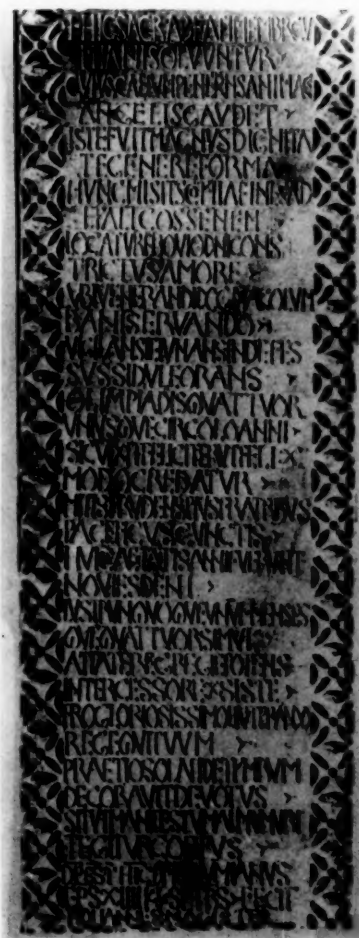 HIC SACRA BEATI MEMBRA CV
MIANI SOLVVNTVR
CVIVS CAELVM PENETRANS ANIMA CV
ANGELIS GAVDET
ISTE FVIT MAGNVS DIGNITA
TE GENERE FORMA
HVNC MISIT SCOTHIA FINES AD
ITALICOS SENEN
LOCATVR EBOVIO DNI CONS
TRICTVS AMORE
VBI VENERANDI DOGMA COLVM
BANI SERVANDO
VIGILANS IEIVNANS INDEFES
SVS SIDVLE ORANS
OLIMPIADIS QVATTVOR
VNIVSQVE CIRCOLO ANNI
SIC VIXIT FELICITER VT FELIX
MODO CREDATVR
MITIS PRVDENS PIVS FRATRIBVS
PACIFICVS CVNCTIS
HVIC AETATIS ANNI FVERVNT
NOVIES DENI
LVSTRVM QVOQVE VNVM MENSES
QVE QVATTVOR SIMVL
AT PATER EGREGIE POTENS
INTERCESSOR EXSISTE
PRO GLORIOSISSIMO LIVTPRANDO
REGE QVI TVVM
PRAETIOSO LAPIDE TYMBVM
DECORAVIT DEVOTVS
SIT VT MANIFESTVM ALMVM VBI
TEGITVR CORPVS
HIC CVMIANVS
EPS XIIII FECIT